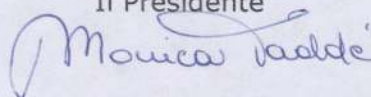 Il Presidente
Monica Taddé